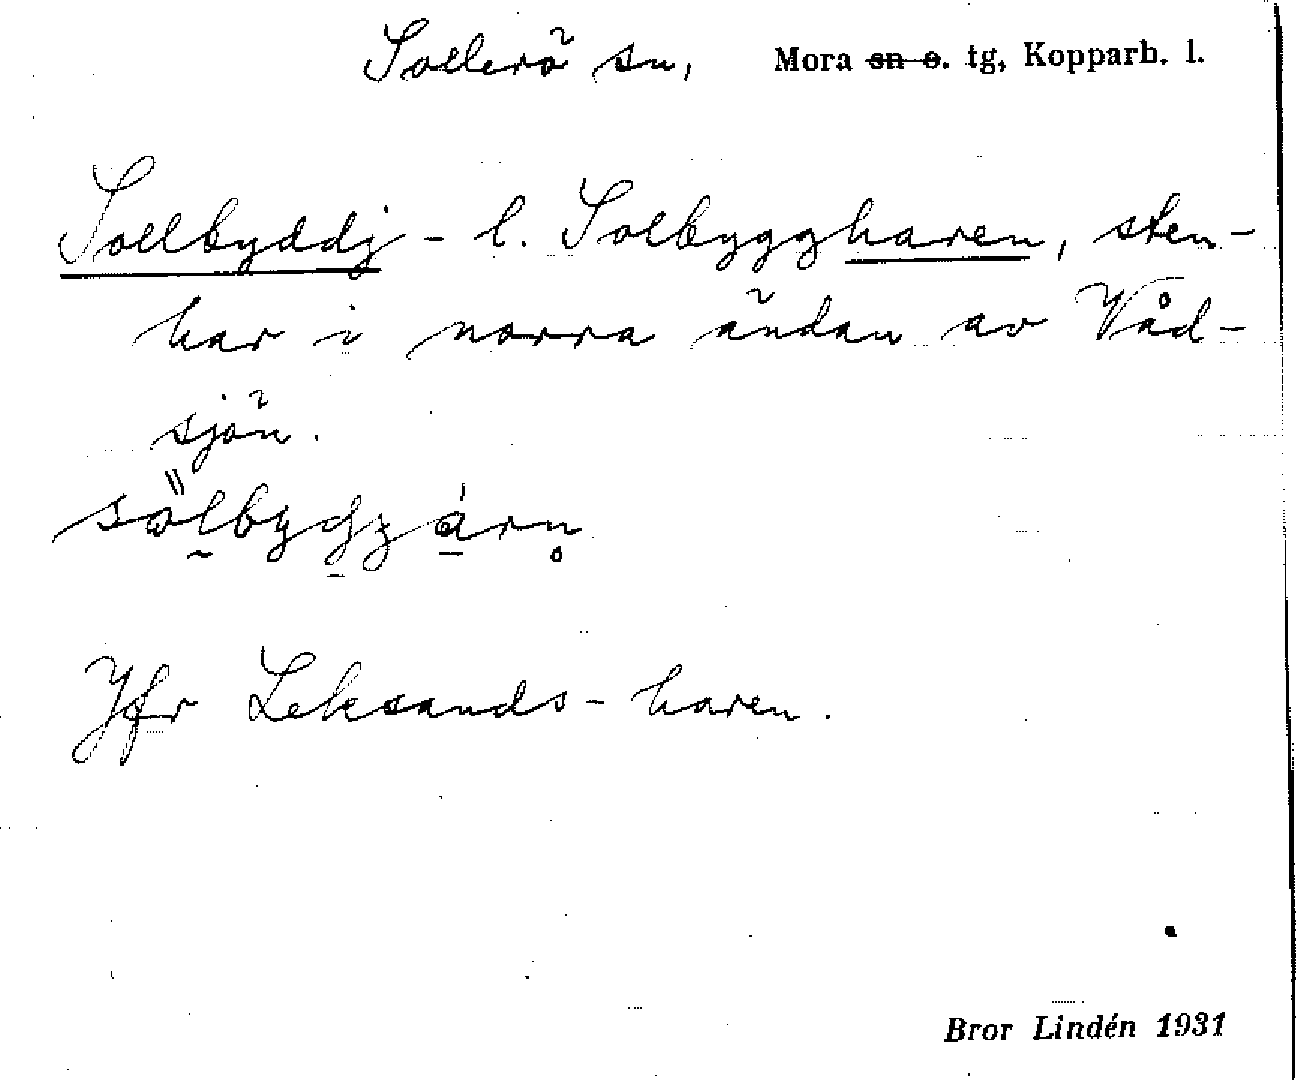 Sollerö sn, Mora sn o. tg, Kopparb. l.
Sollbyddj- l. Solbyggharen, sten-
har i norra ändan av Våd-
sjön.
Jfr Leksands-haren.
Bror Lindén 1931